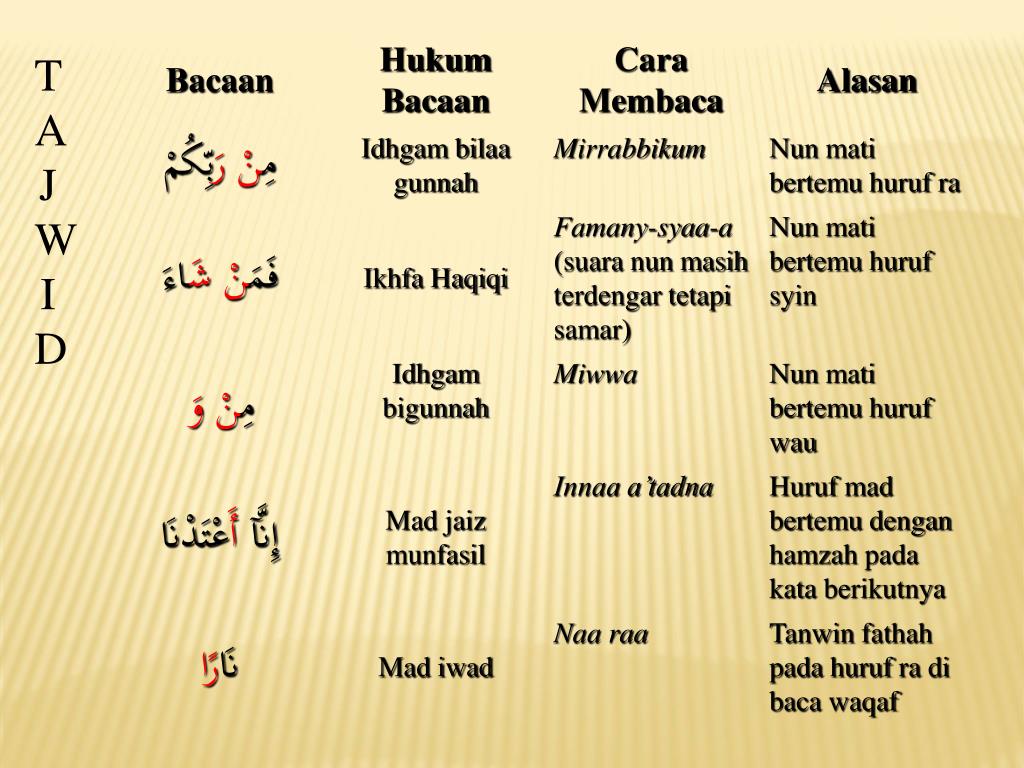 T
A
J
W
I
D
Bacaan
Hukum
Bacaan
Cara
Membaca
Alasan
مِنْ رَبِّكُمْ
Idhgam bilaa
gunnah
Mirrabbikum
Nun mati
bertemu huruf ra
فَمَنْ شَاءَ
Ikhfa Haqiqi
Famany-syaa-a
(suara nun masih
terdengar tetapi
samar)
Nun mati
bertemu huruf
syin
مِنْ وَ
Idhgam
bigunnah
Miwwa
Nun mati
bertemu huruf
wau
إِنَّآ أَعْتَدْنَا
Mad jaiz
munfasil
Innaa a’tadna
Huruf mad
bertemu dengan
hamzah pada
kata berikutnya
نَارًا
Mad iwad
Naa raa
Tanwin fathah
pada huruf ra di
baca waqaf